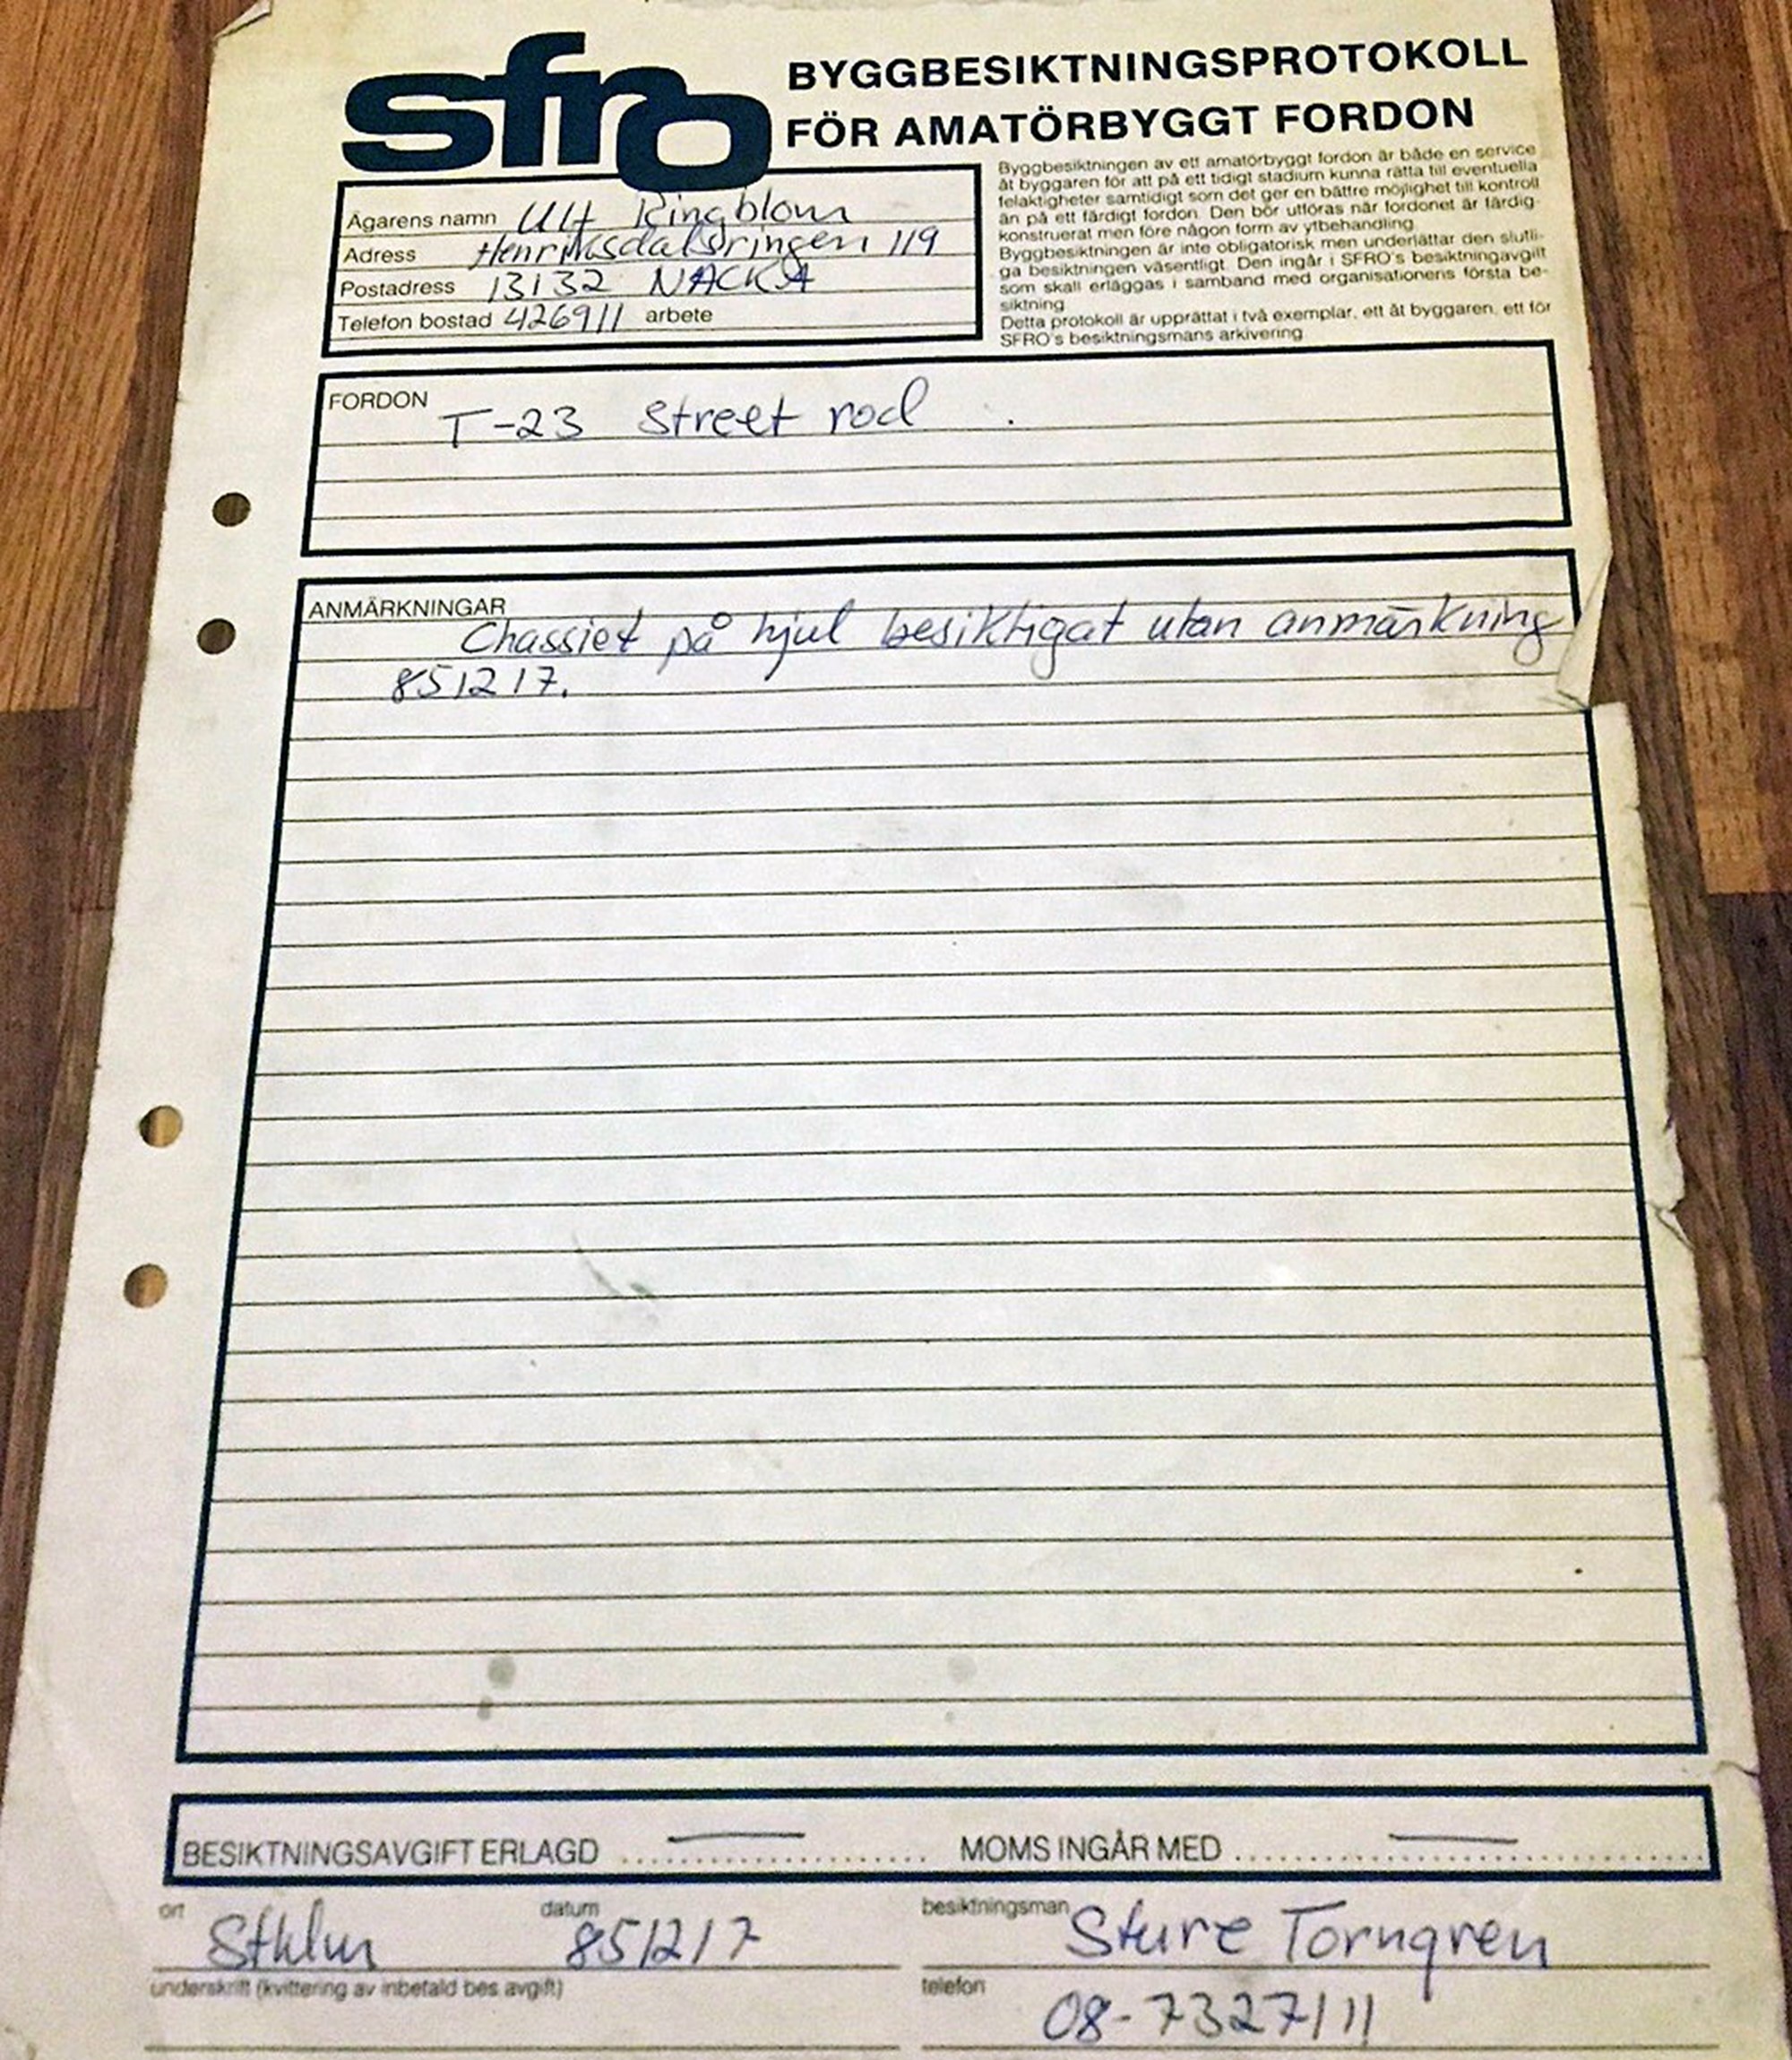 sfro
BYGGBESIKTNINGSPROTOKOLL
FÖR AMATÖRBYGGT FORDON
Ägarens namn Ulf Ringblom
Adress Henriksdalsringen 119
Postadress 13132 NACKA
Telefon bostad 426911 arbete
Byggbesiktningen av ett amatörbyggt fordon är både en service
åt byggaren för att på ett tidigt stadium kunna rätta till eventuella
felaktigheter samtidigt som det ger en bättre möjlighet till kontroll
än på ett färdigt fordon. Den bör utföras när fordonet är färdig-
konstruerat men före någon form av ytbehandling.
Byggbesiktningen är inte obligatorisk men underlättar den slutli-
ga besiktningen väsentligt. Den ingår i SFRO's besiktningavgift
som skall erläggas i samband med organisationens första be-
siktning
Detta protokoll är upprättat i två exemplar, ett åt byggaren, ett för
SFRO's besiktningsmans arkivering
FORDON
T-23 Street rod
ANMÄRKNINGAR
Chassiet på hjul besiktigat utan anmärkning
851217.
BESIKTNINGSAVGIFT ERLAGD — MOMS INGÅR MED —
ort Sthlm datum 851217
besiktningsman Sture Torngren
underskrift (kvittering av inbetald bes.avgift)
telefon 08-7327111